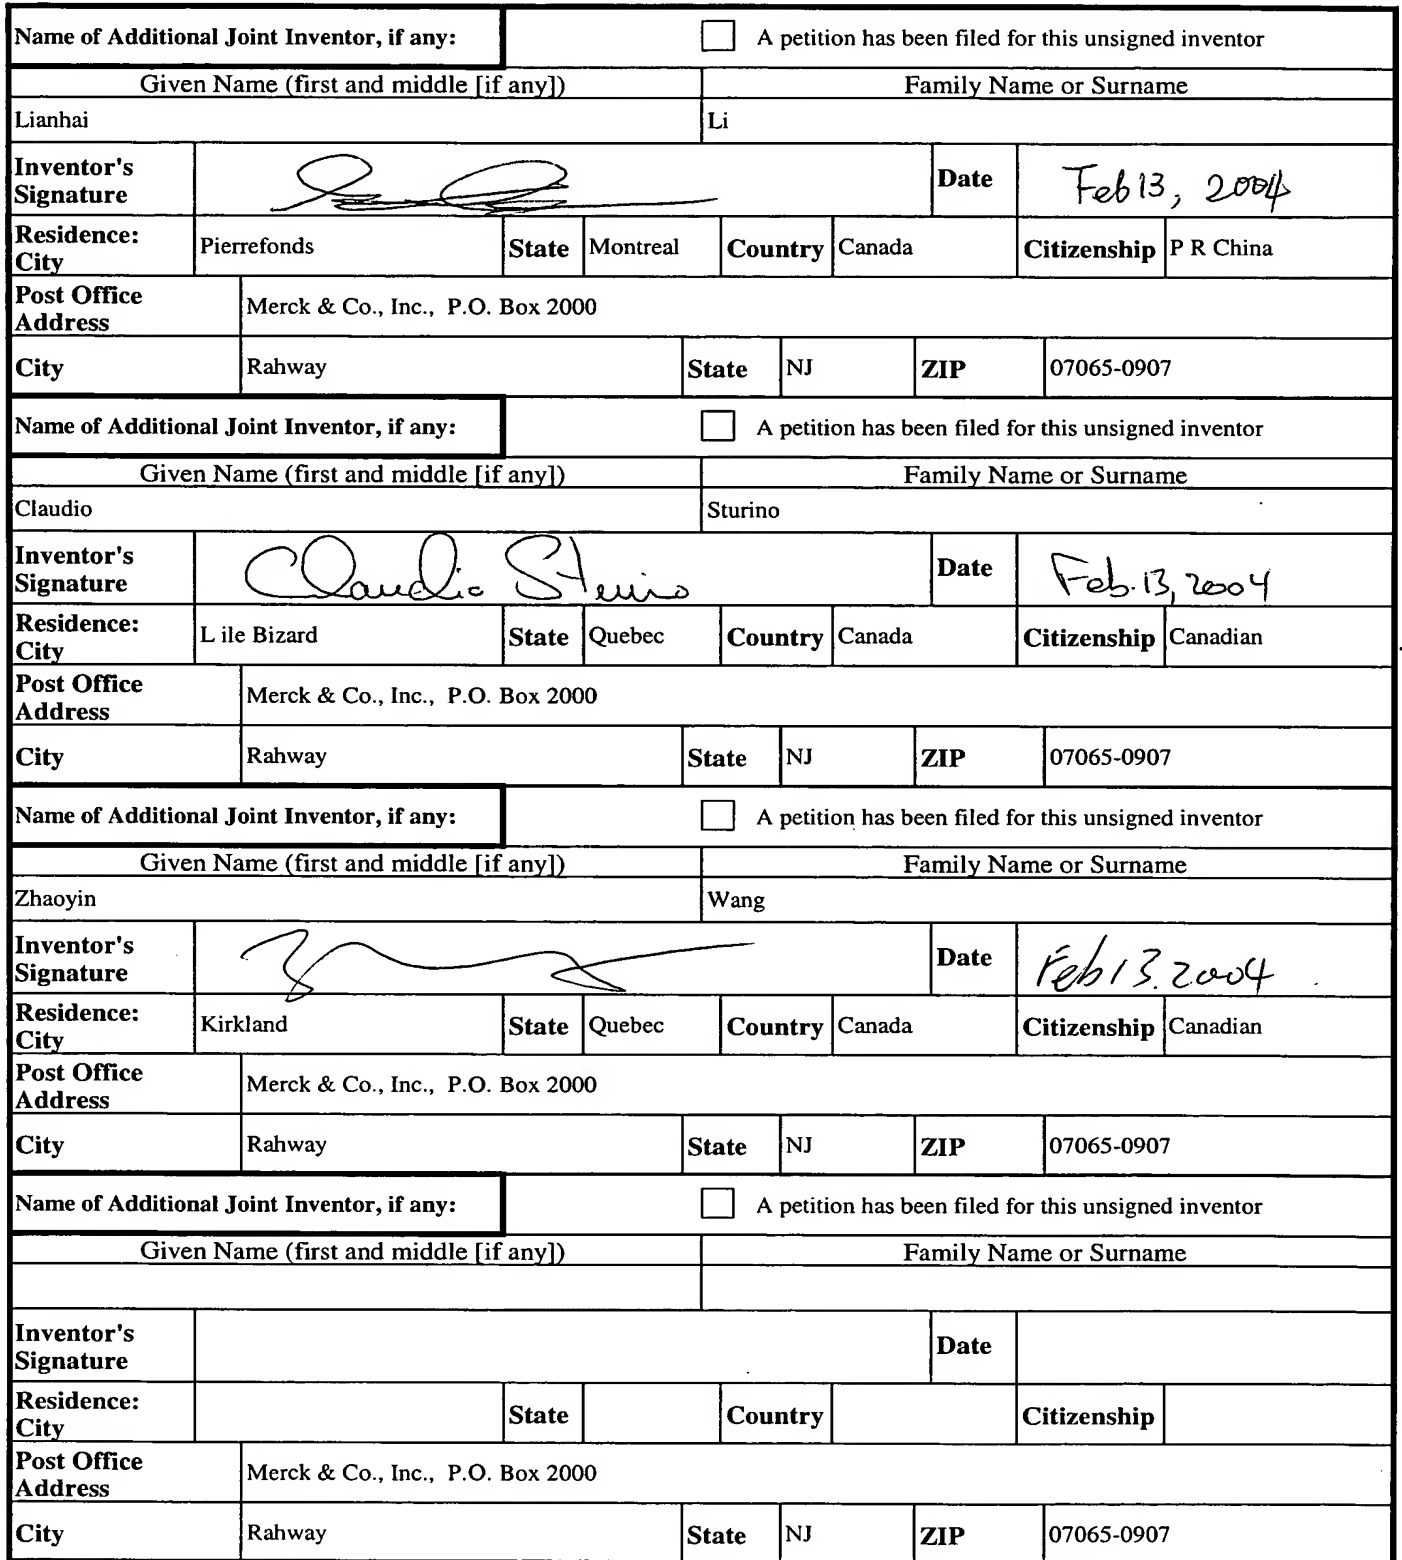 Name of Additional Joint Inventor, if any: A petition has been filed for this unsigned inventor
Given Name (first and middle [if any]) Family Name or Surname
Lianhai Li
Inventor's Signature Date Feb 13, 2004
Residence: City Pierrefonds State Montreal Country Canada Citizenship P R China
Post Office Address Merck & Co., Inc., P.O. Box 2000
City Rahway State NJ ZIP 07065-0907
Name of Additional Joint Inventor, if any: A petition has been filed for this unsigned inventor
Given Name (first and middle [if any]) Family Name or Surname
Claudio Sturino
Inventor's Signature Claudio Sturino Date Feb. 13, 2004
Residence: City L ile Bizard State Quebec Country Canada Citizenship Canadian
Post Office Address Merck & Co., Inc., P.O. Box 2000
City Rahway State NJ ZIP 07065-0907
Name of Additional Joint Inventor, if any: A petition has been filed for this unsigned inventor
Given Name (first and middle [if any]) Family Name or Surname
Zhaoyin Wang
Inventor's Signature Date Feb 13. 2004
Residence: City Kirkland State Quebec Country Canada Citizenship Canadian
Post Office Address Merck & Co., Inc., P.O. Box 2000
City Rahway State NJ ZIP 07065-0907
Name of Additional Joint Inventor, if any: A petition has been filed for this unsigned inventor
Given Name (first and middle [if any]) Family Name or Surname
Inventor's Signature Date
Residence: City State Country Citizenship
Post Office Address Merck & Co., Inc., P.O. Box 2000
City Rahway State NJ ZIP 07065-0907